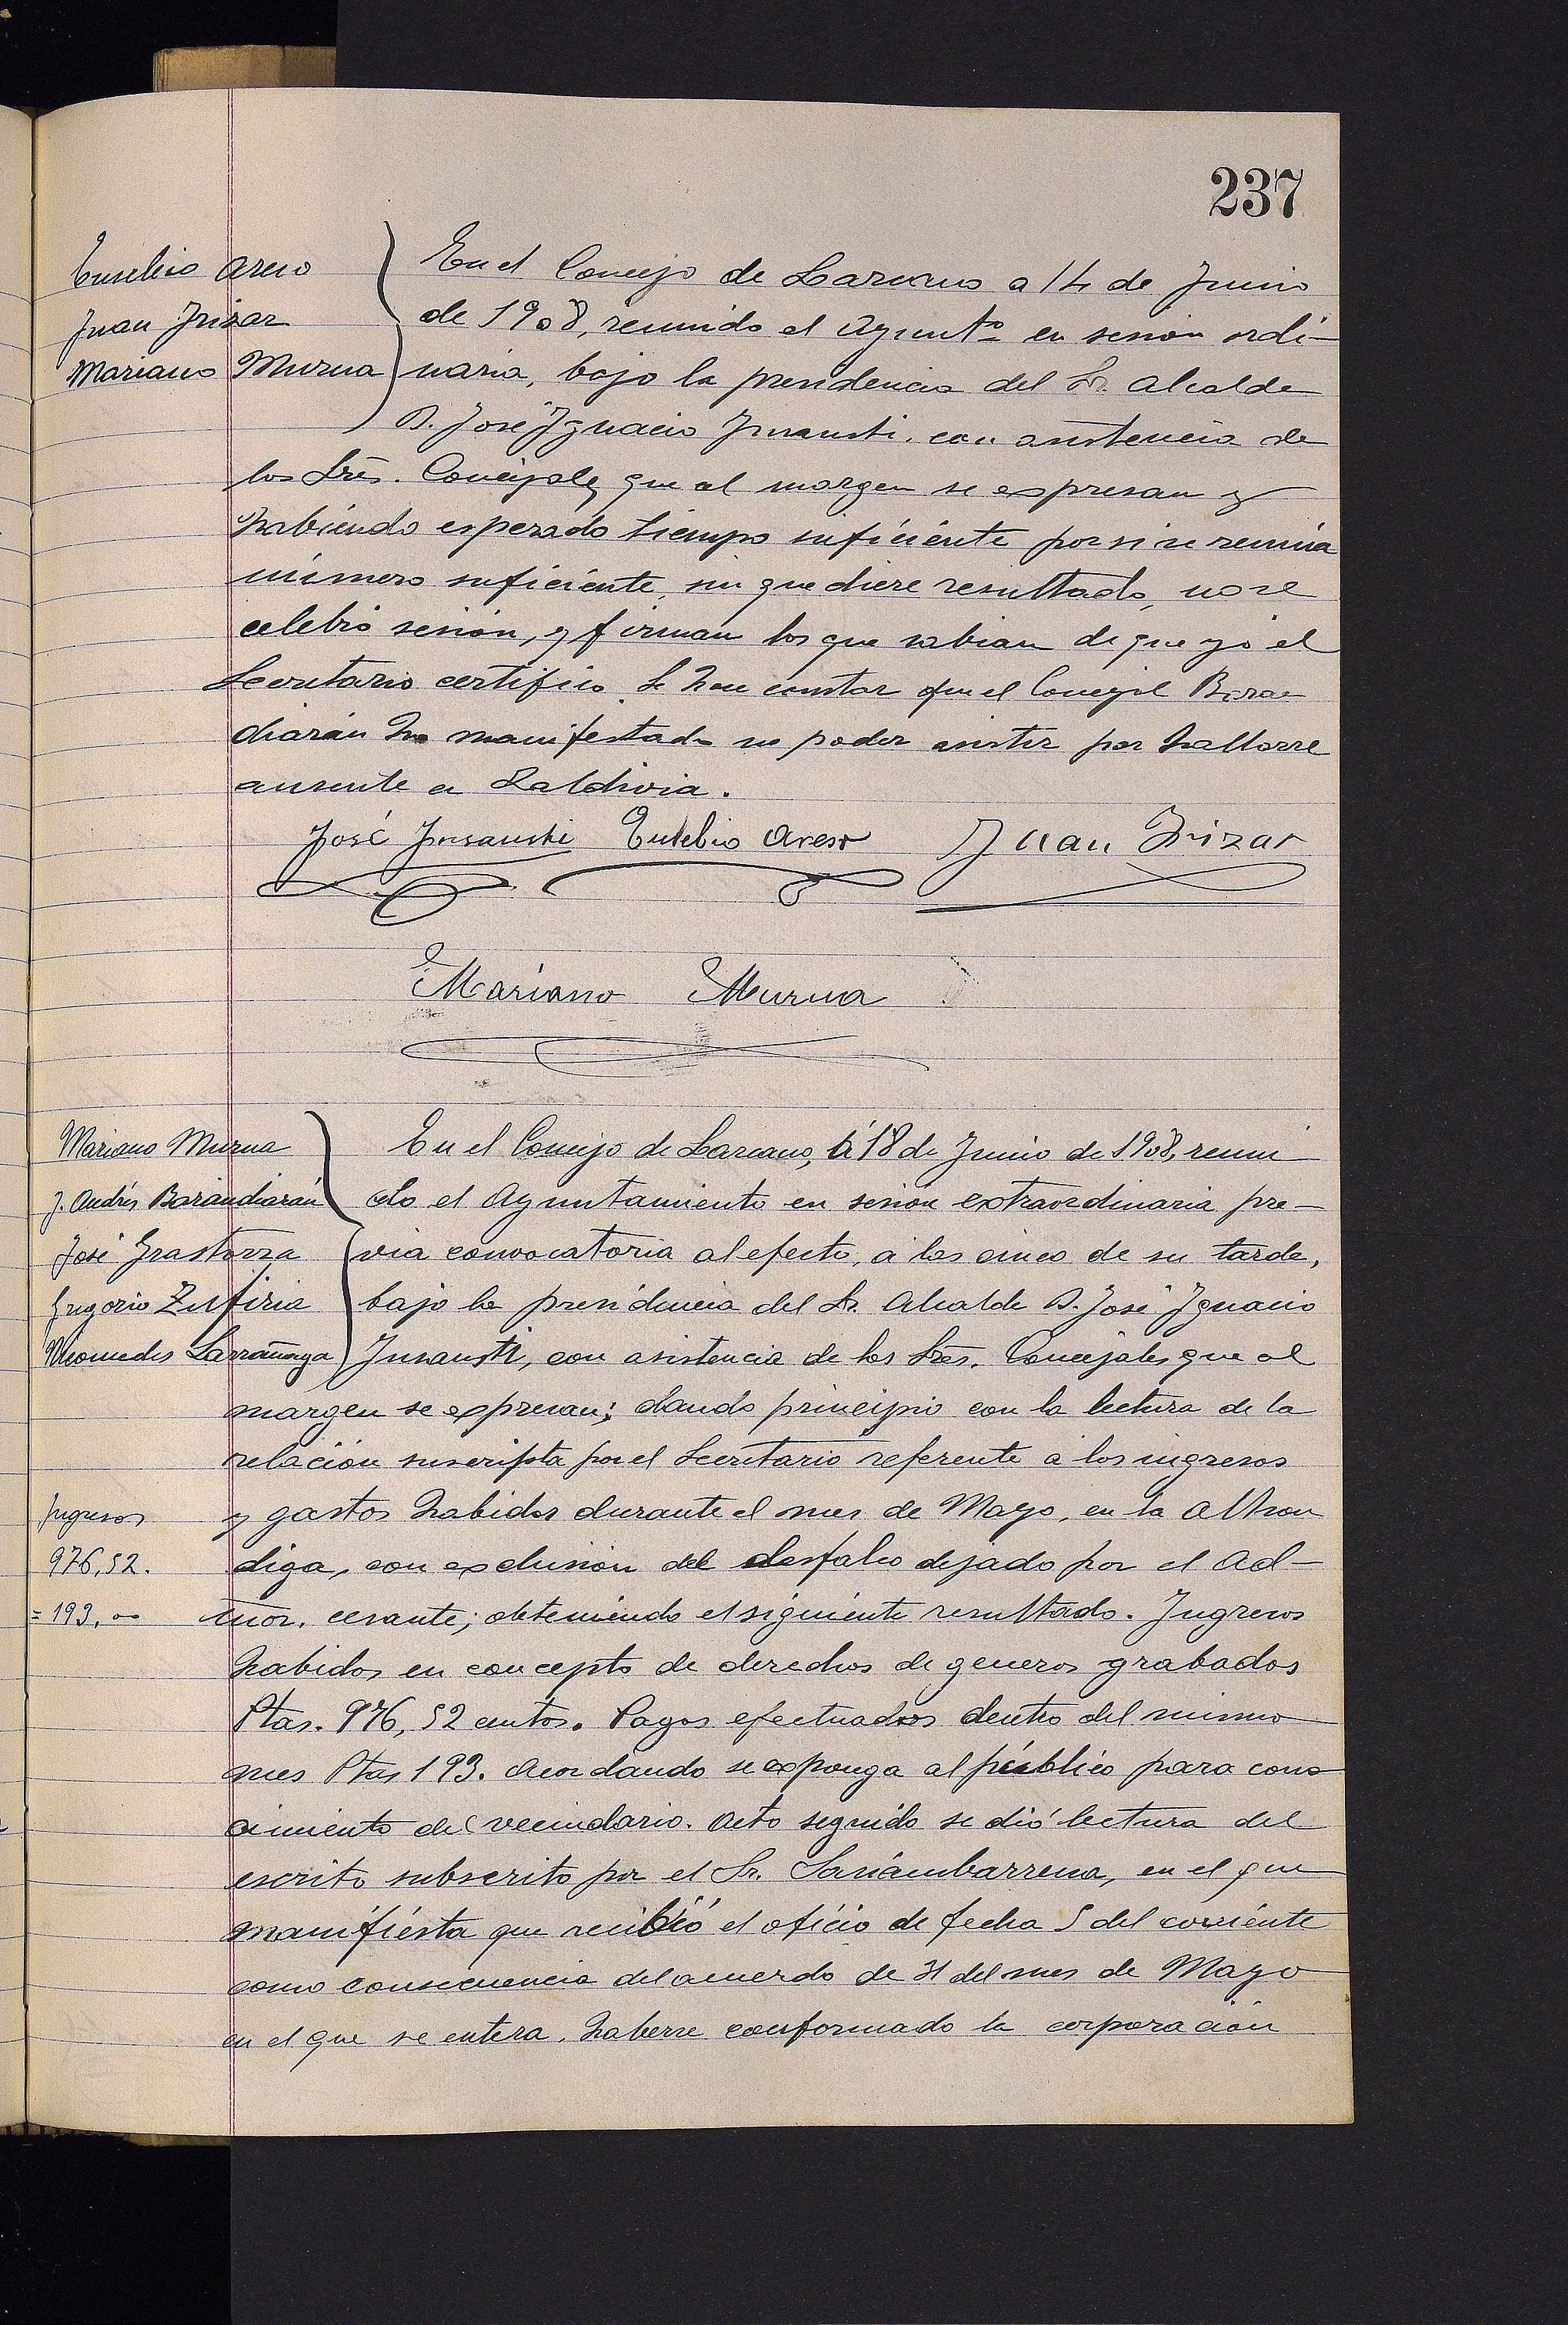 237
Eusebio Areso
Juan Irizar
Mariano Murua
En el Concejo de Lazcano a 14 de Junio
de 1908, reunido el Ayunt.º en sesion ordi-
naria, bajo la presidencia del Sr. Alcalde
D. José Ignacio Insausti, con asistencia de
los Sres. Concejales que al margen se expresan y
habiendo esperado tiempo suficiente por si se reunia
número suficiente, sin que diere resultado, no se
celebró sesión, y firman los que sabian de que yo el
Secretario certifico. Se hace constar que el Concejal Baran
diarán ha manifestado no poder asistir por hallarse
ausente en Zaldivia.
José Insausti Eusebio Areso Juan Irizar
Mariano Murua
Mariano Murua
J. Andrés Barandiarán
José Irastorza
Gregorio Zufiria
Nicomedes Larrañaga
En el Concejo de Lazcano, á 18 de Junio de 1908, reuni
do el Ayuntamiento en sesión extraordinaria pre-
via convocatoria al efecto, á las cinco de su tarde,
bajo la presidencia del Sr. Alcalde D. José Ignacio
Insausti, con asistencia de los Sres. Concejales que al
margen se expresan; dando principio con la lectura de la
relación suscripta por el Secretario referente á los ingresos
Ingresos
y gastos habidos durante el mes de Mayo, en la Alhon
976,52.
diga, con exclusión del desfalco dejado por el Ad-
= 193,00
mor. cesante; obteniendo el siguiente resultado. Ingresos
habidos en concepto de derechos de generos grabados
Ptas. 976,52 centos. Pagos efectuados dentro del mismo
mes Ptas 193. Acordando se exponga al público para cono
cimiento del vecindario. Acto seguido se dió lectura del
escrito subscrito por el Sr. Sariambarrena, en el que
manifiesta que recibió el oficio de fecha 5 del corriente
como consecuencia del acuerdo de 31 del mes de Mayo
en el que se entera, haberse conformado la corporación